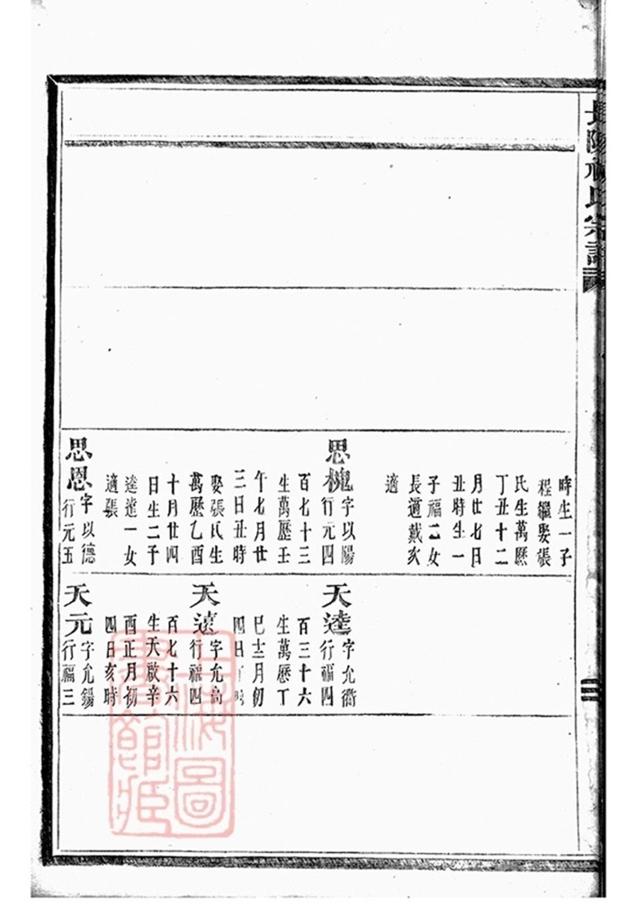 氏宗譜
時生一子
程繼娶張
氏生萬曆
丁丑十二
月廿七日
丑時生一
子福二女
長適戴次
適
思槐字以陽
行元四
百七十三
生萬曆壬
午七月廿
三日丑時
娶張氏生
萬曆乙酉
十月廿四
日生二子
逵達一女
適張
思恩字以德
行元五
天逵字允衢
行福四
百三十六
生萬曆丁
巳十二月初
四日
天達字允
行福四
百七十六
生天啟辛
酉正月初
四日亥時
天元字允錫
行福三
圖
館